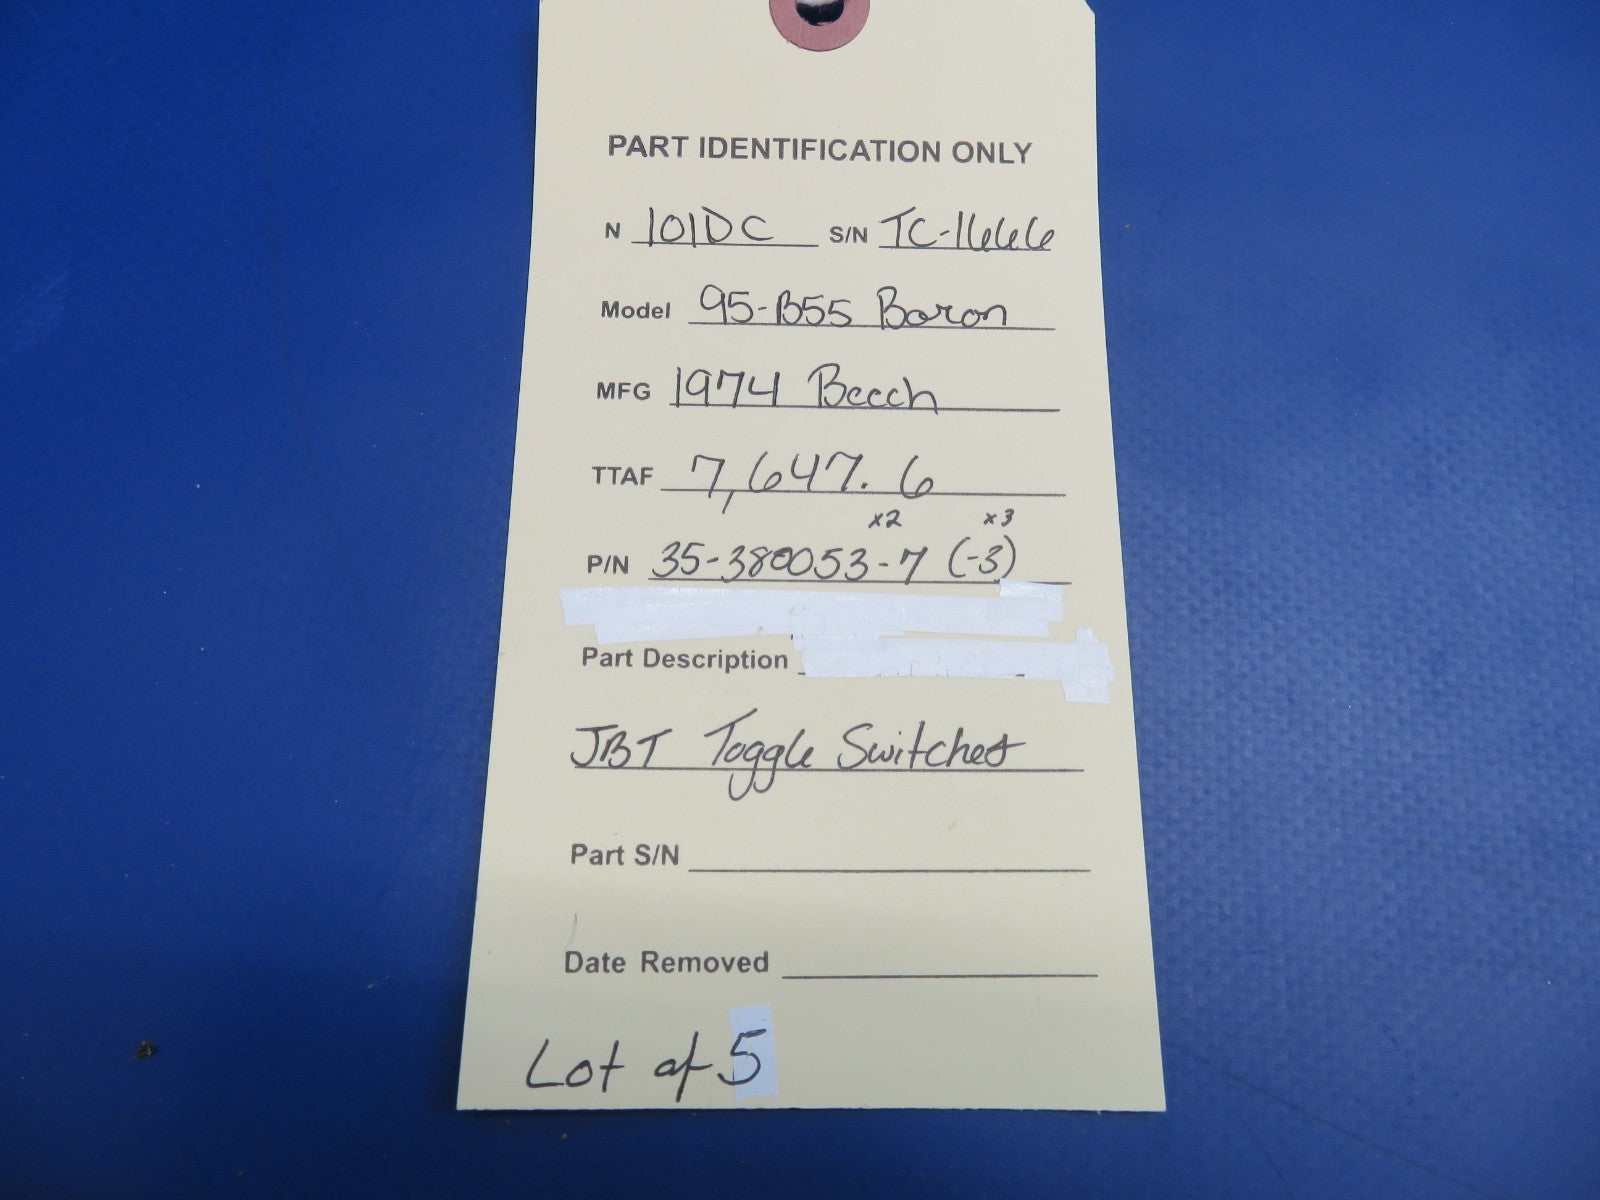 PART IDENTIFICATION ONLY
N 101DC S/N TC-1666
Model 95-B55 Baron
MFG 1974 Beech
TTAF 7,647.6
x2 x3
P/N 35-380053-7 (-3)
Part Description
JBT Toggle Switches
Part S/N
Date Removed
Lot of 5